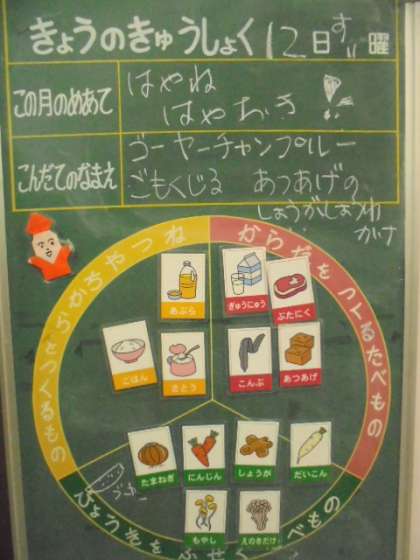 きょうのきゅうしょく 12日 すい 曜
この月のめあて
はやね
はやおき
こんだてのなまえ
ゴーヤーチャンプルー
ごもくじる あつあげの
しょうがじょうゆ
かけ
ちからやねつをつくるもの
からだをつくるたべもの
あぶら
ぎゅうにゅう
ぶたにく
ごはん
さとう
こんぶ
あつあげ
たまねぎ
にんじん
しょうが
だいこん
もやし
えのきだけ